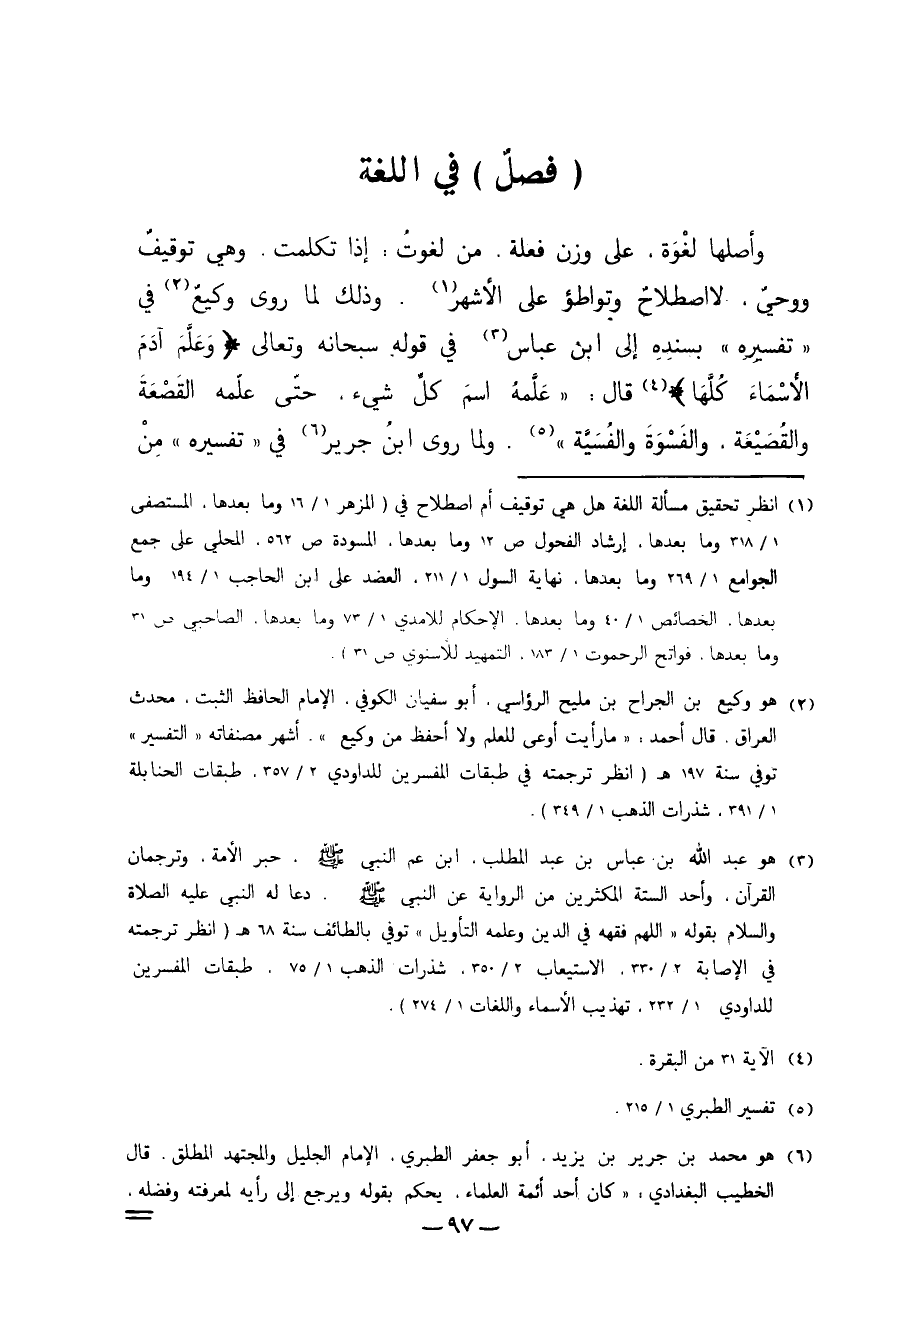 ( فصلٌ ) في اللغة
وأصلها لغْوَة ، على وزن فعلة . من لغوتُ : إذا تكلمت . وهي توقيفٌ
ووحيٌ ، لااصطلاحٌ وتواطؤ على الأشهر(١) . وذلك لما روى وكيعٌ(٢) في
« تفسيرِهِ » بسندِهِ إلى ابن عباس(٣) في قوله سبحانه وتعالى ﴿ وَعَلَّمَ آدَمَ
الأَسْمَاءَ كُلَّهَا ﴾(٤) قال : « عَلَّمهُ اسمَ كلِّ شيء ، حتّى علّمه القَصْعَةَ
والقُصَيْعَة ، والفَسْوَةَ والفُسَيَّة »(٥) . ولما روى ابنُ جرير(٦) في « تفسيره » مِنْ
(١) انظر تحقيق مسألة اللغة هل هي توقيف أم اصطلاح في ( المزهر ١ / ١٦ وما بعدها ، المستصفى
١ / ٣١٨ وما بعدها ، إرشاد الفحول ص ١٢ وما بعدها ، المسودة ص ٥٦٢ ، المحلي على جمع
الجوامع ١ / ٢٦٩ وما بعدها ، نهاية السول ١ / ٢١١ ، العضد على ابن الحاجب ١ / ١٩٤ وما
بعدها ، الخصائص ١ / ٤٠ وما بعدها . الإحكام للآمدي ١ / ٧٣ وما بعدها ، الصاحبي ص ٣١
وما بعدها ، فواتح الرحموت ١ / ١٨٣ ، التمهيد للأسنوي ص ٣١ ) .
(٢) هو وكيع بن الجراح بن مليح الرؤاسي ، أبو سفيان الكوفي ، الإمام الحافظ الثبت ، محدث
العراق . قال أحمد : « مارأيت أوعى للعلم ولا أحفظ من وكيع » . أشهر مصنفاته « التفسير »
توفي سنة ١٩٧ هـ ( انظر ترجمته في طبقات المفسرين للداودي ٢ / ٣٥٧ ، طبقات الحنابلة
١ / ٣٩١ ، شذرات الذهب ١ / ٣٤٩ ) .
(٣) هو عبد الله بن عباس بن عبد المطلب ، ابن عم النبي ﷺ ، حبر الأمة ، وترجمان
القرآن ، وأحد الستة المكثرين من الرواية عن النبي ﷺ . دعا له النبي عليه الصلاة
والسلام بقوله « اللهم فقهه في الدين وعلمه التأويل » توفي بالطائف سنة ٦٨ هـ ( انظر ترجمته
في الإصابة ٢ / ٣٣٠ ، الاستيعاب ٢ / ٣٥٠ ، شذرات الذهب ١ / ٧٥ ، طبقات المفسرين
للداودي ١ / ٢٣٢ ، تهذيب الأسماء واللغات ١ / ٢٧٤ ) .
(٤) الآية ٣١ من البقرة .
(٥) تفسير الطبري ١ / ٢١٥ .
(٦) هو محمد بن جرير بن يزيد ، أبو جعفر الطبري ، الإمام الجليل والمجتهد المطلق . قال
الخطيب البغدادي : « كان أحد أئمة العلماء ، يحكم بقوله ويرجع إلى رأيه لمعرفته وفضله ،
— ٩٧ —